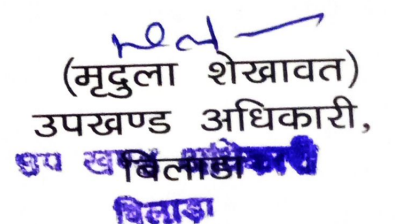 (मृदुला शेखावत)
उपखण्ड अधिकारी,
बिलाडा
उप खण्ड अधिकारी
बिलाड़ा